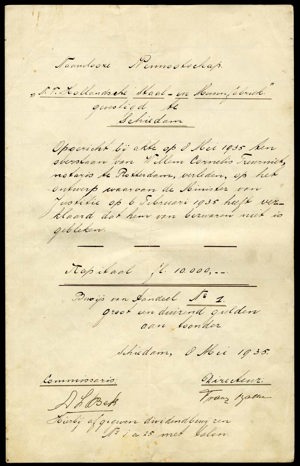 Naamlooze Vennootschap
"N.V. Hollandsche Staal- en
gevestigd te
Schiedam
Opgericht bij akte op 8 Mei 1935 ten
overstaan van Willem Cornelis Treurniet,
notaris te Rotterdam, verleden, op het
ontwerp waarvan de Minister van
Justitie op 6 Februari 1935 heeft ver-
klaard dat hem van bezwaren niet is
gebleken.
Kapitaal fl 10.000,--
Bewijs van Aandeel No 1
groot een duizend gulden
aan toonder
Schiedam, 8 Mei 1935.
Commissaris Directeur
Hierbij afgegeven dividendbewijzen
No 1 a 25 met talon